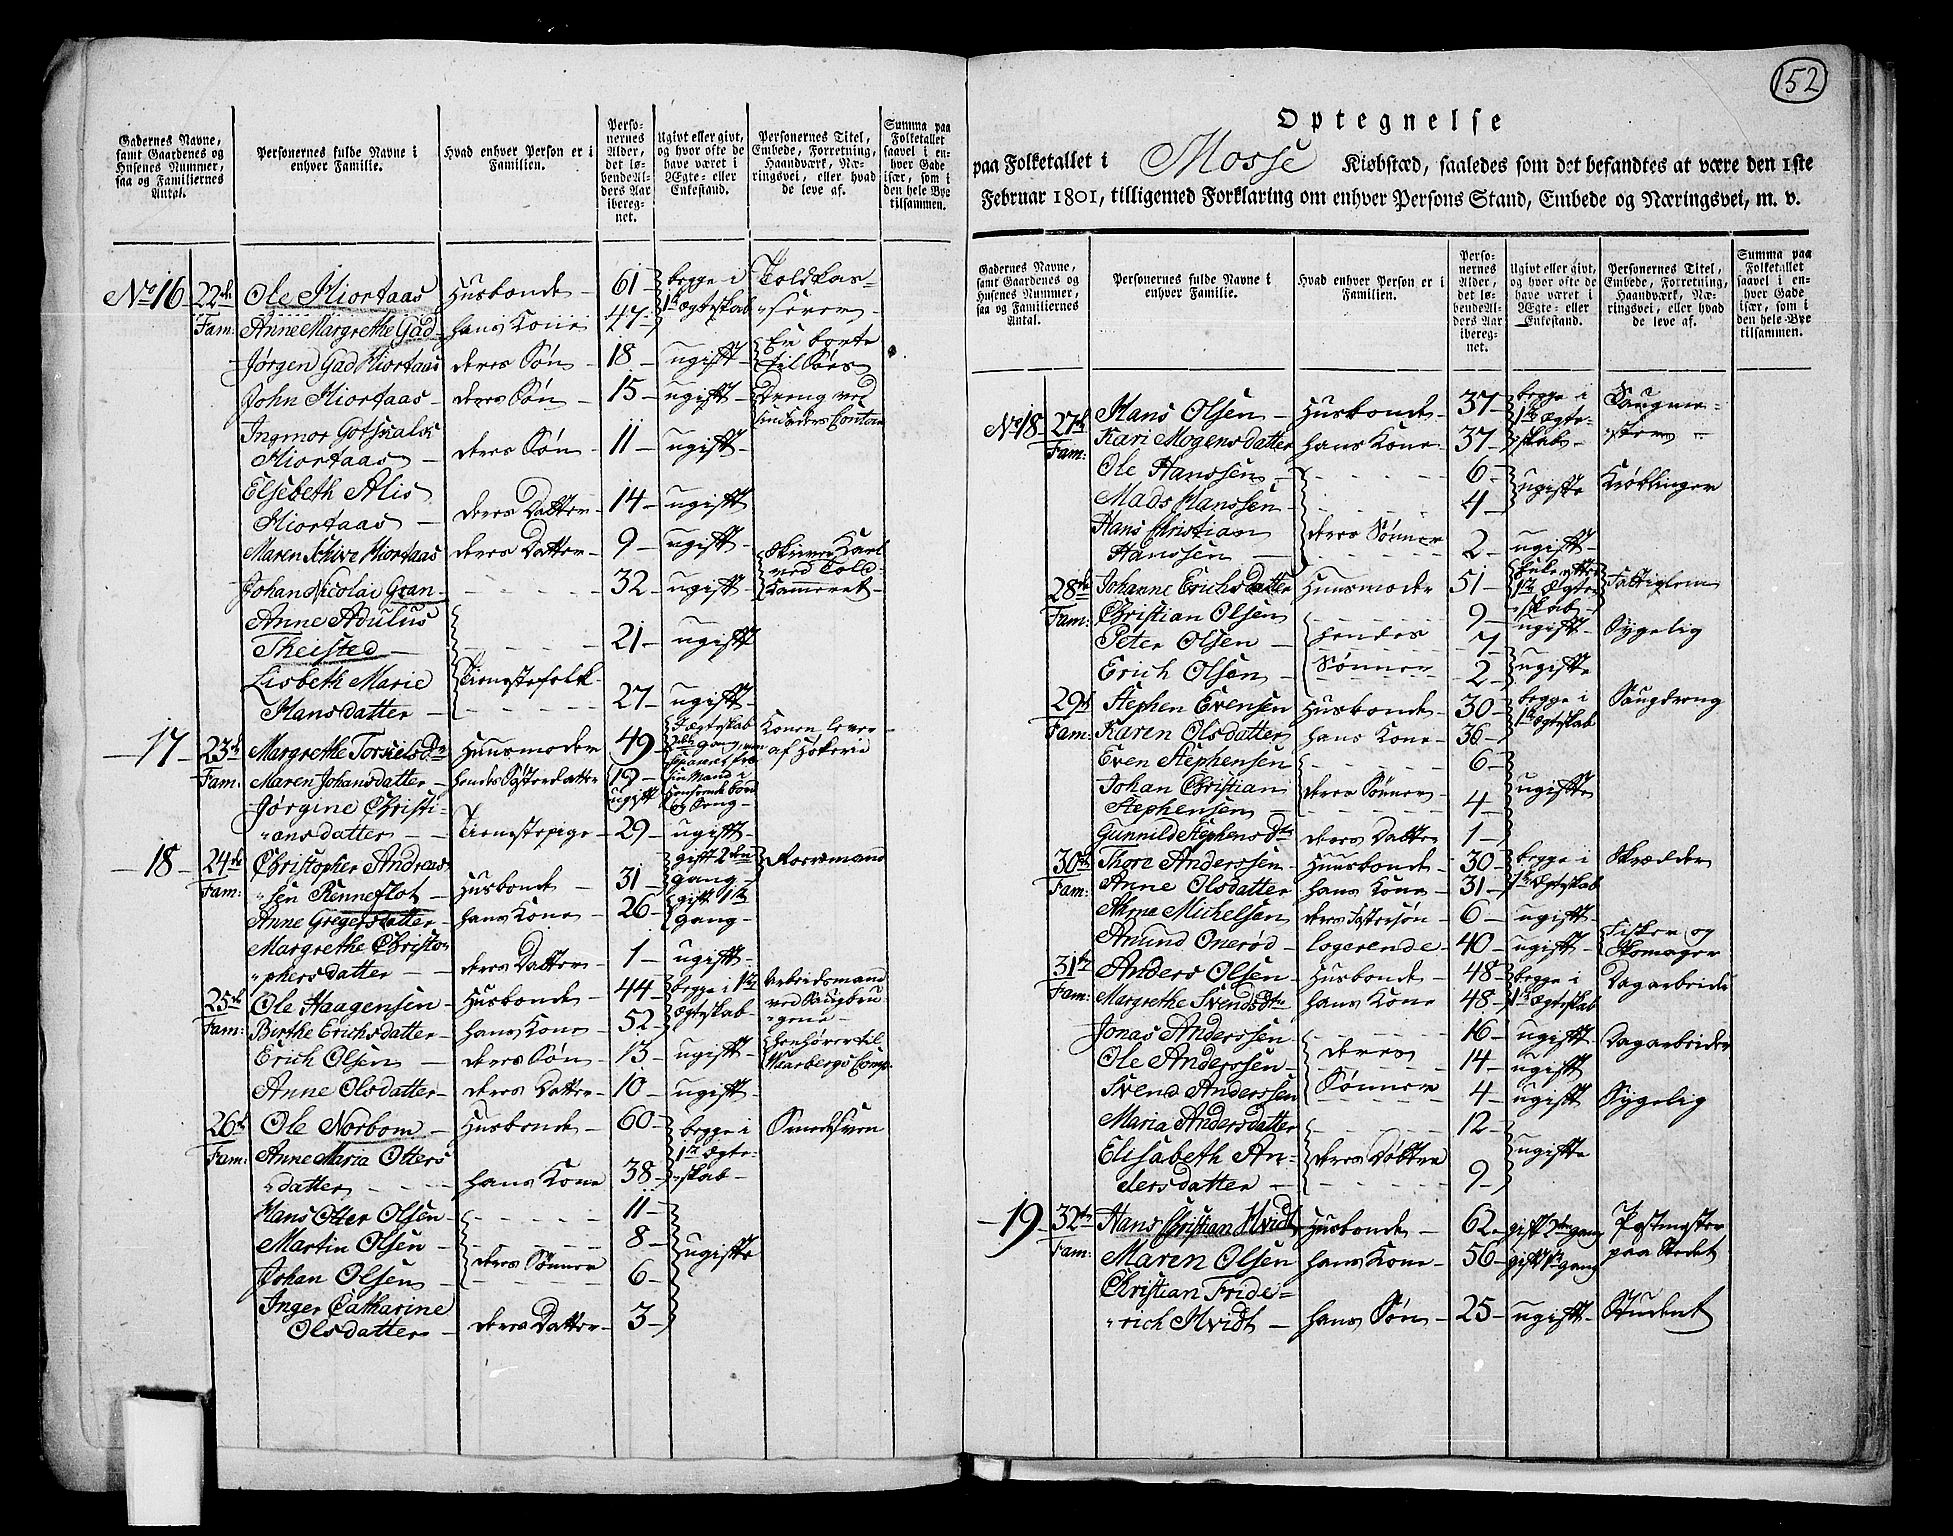 152
Gadernes Navne, samt Gaardenes og Husenes Nummer, saa og Familiernes Antal.
Personernes fulde Navne i enhver Familie.
Hvad enhver Person er i Familien.
Personernes Alder, det løbende Alders Aar iberegnet.
Ugivt eller givt, og hvor ofte de have været i Ægte- eller Enkestand.
Personernes Titel, Embede, Forretning, Haandværk, Næringsvei, eller hvad de leve af.
Summa paa Folketallet saavel i enhver Gade især, som i den hele Bye tilsammen.
No 16 22de Ole Hiortaas Huusbonde 61 begge i Toldkas-
Fam: Anne Margrethe Gad hans Kone 47 1te Ægteskab serer
Jørgen Gad Hiortaas deres Søn 18 ugift Er borte til Søes
John Hiortaas deres Søn 15 ugift Dreng ved
Ingmor Gotskalk
Hiortaas deres Søn 11 ugift
Elsebeth Alis
Hiortaas deres Datter 14 ugift
Maren Schive Hiortaas deres Datter 9 ugift
Johan Nicolai Gran 32 ugift Skriver Karl ved Told Kammeret
Anne Adulus
Theisted 21 ugift
Lisbeth Marie Tienestefolk
Hansdatter 27 ugift
17 23de Margrethe Torkiels Dr Huusmoder 49 Konen lever af Høkerie
Fam: Maren Johansdatter hendes Søsterdatter 19 ugift
Jørgine Christi-
ansdatter Tienestepige 29 ugift
18 24de Christopher Andreas- gift 2den Roersmand
Fam: sen Renneflot Huusbonde 31 gang
Anne Gregersdatter hans Kone 26 gift 1te gang
Margrethe Christo-
phersdatter deres Datter 1 ugift
25de Ole Haagensen Huusbonde 44 begge i 1te Arbeidsmand
Fam: Birthe Erichsdatter hans Kone 52 Ægteskab ved Saugbrugene
Erich Olsen deres Søn 13 ugift henhører til Waarbergs Comp
Anne Olsdatter deres Datter 10 ugift
26de Ole Norbom Huusbonde 60 begge i Smedsvend
Fam: Anne Maria Otters 1te Ægte-
datter hans Kone 38 skab
Hans Otter Olsen 11
Martin Olsen deres Sønner 8 ugifte
Johan Olsen 6
Inger Catharine
Olsdatter deres Datter 3
Optegnelse
paa Folketallet i Mosse Kiøbstæd, saaledes som det befandtes at være den 1ste
Februar 1801, tilligemed Forklaring om enhver Persons Stand, Embede og Næringsvei, m. v.
Gadernes Navne, samt Gaardenes og Husenes Nummer, saa og Familiernes Antal.
Personernes fulde Navne i enhver Familie.
Hvad enhver Person er i Familien.
Personernes Alder, det løbende Alders Aar iberegnet.
Ugivt eller givt, og hvor ofte de have været i Ægte- eller Enkestand.
Personernes Titel, Embede, Forretning, Haandværk, Næringsvei, eller hvad de leve af.
Summa paa Folketallet saavel i enhver Gade især, som i den hele Bye tilsammen.
No 18 27de Hans Olsen Huusbonde 37 begge i Saugme-
Fam: Kari Mogensdatter hans Kone 37 1te Ægteskab ster
Ole Hanssen 6 ugifte Krøblinger
Mads Hanssen 4
Hans Christian deres Sønner
Hanssen 2 ugift
28de Johanne Erichsdatter Huusmoder 51 Enke efter 1te Ægteskab Fattiglem
Fam: Christian Olsen 9 ugift Sygelig
Peter Olsen hendes 7
Erich Olsen Sønner 2 ugifte
29de Stephen Evensen Huusbonde 30 begge i Saugdreng
Fam: Karen Olsdatter hans Kone 36 1te Ægteskab
Even Stephensen 6
Johan Christian deres Sønner ugifte
Stephensen 4
Gunnild Stephens Dr deres Datter 1
30te Thore Anderssen Huusbonde 30 begge i Skrædder
Fam: Anne Olsdatter hans Kone 31 1te Ægteskab
Michelsen deres Fostersøn 6 ugift
Amund Onerød logerende 40 ugift Fisker og Skomager
31te Anders Olsen Huusbonde 48 begge i Dagarbeider
Fam: Margrethe Svends Dr hans Kone 48 1te Ægteskab
Jonas Anderssen 16 ugift Dagarbeider
Ole Anderssen deres 14 ugift
Svend Anderssen Sønner 4 ugift Sygelig
Maria Andersdatter 12
Elisabeth An- deres Døttre ugifte
dersdatter 9
19 32te Hans Christian Hvidt Huusbonde 62 gift 2den gang Postmester
Fam: Maren Olsen hans Kone 56 gift 1te gang paa Stedet
Christian Fride-
rich Hvidt hans Søn 25 ugift Student